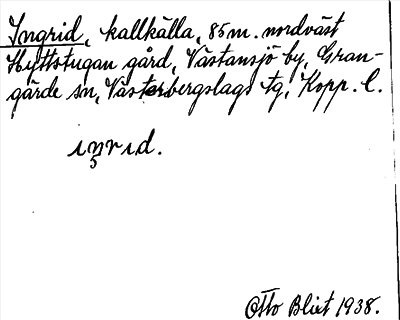 Ingrid, kallkälla, 85 m. nordväst
Hyttstugan gård, Västansjö by, Gran-
gärde sn, Västerbergslags tg, Kopp. l.
iŋrid.
5
Otto Blixt 1938.